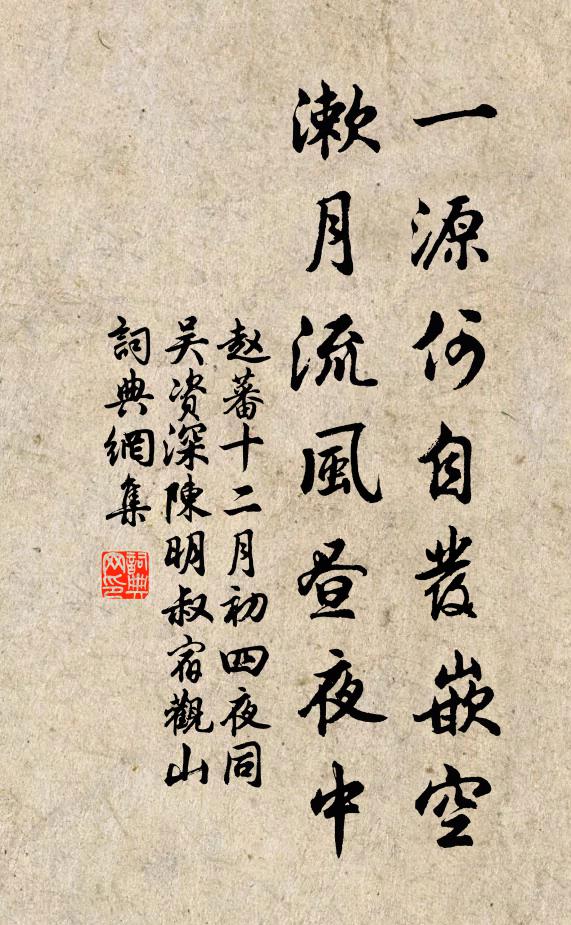 一源何自發嵌空
漱月流風昼夜中
赵蕃十二月初四夜同
吴资深陳明叔宿觀山
詞典網集
詞典網印